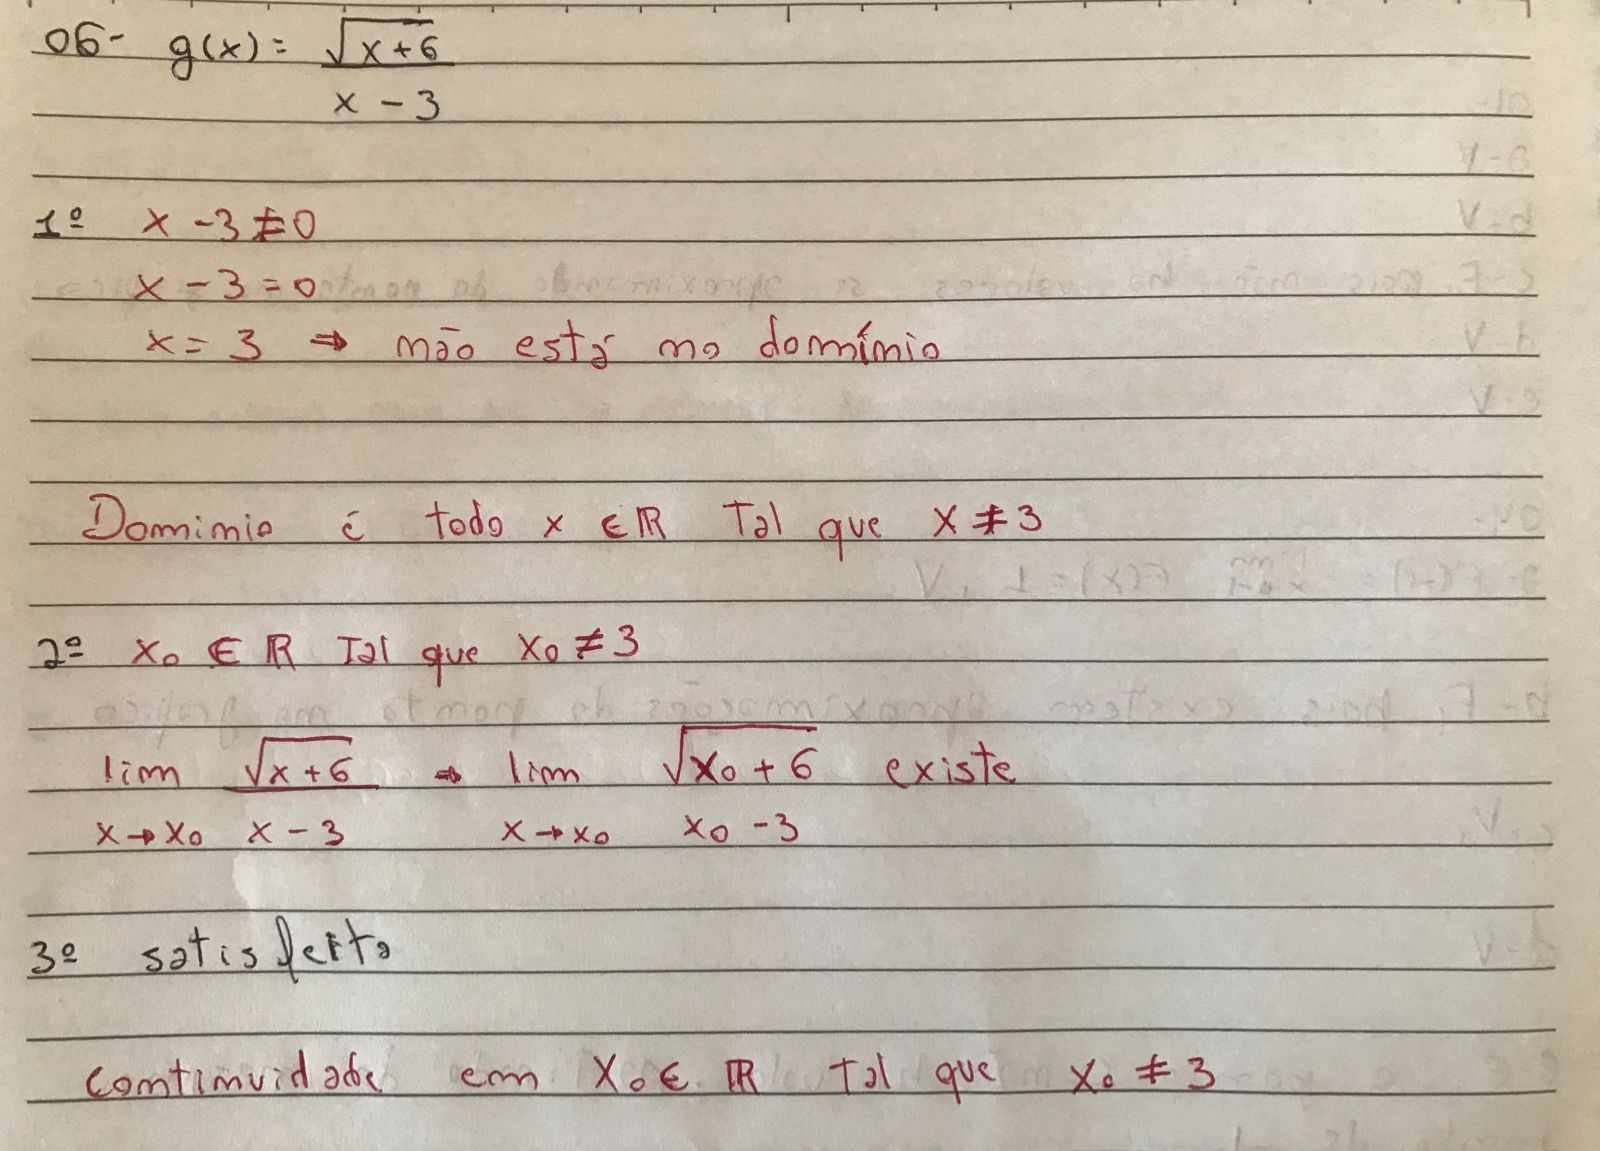 06- g(x) = √x+6
x - 3
1º x - 3 ≠ 0
x - 3 = 0
x = 3 ⇒ não está no domínio
Dominio é todo x ∈ ℝ Tal que x ≠ 3
2º x₀ ∈ ℝ Tal que x₀ ≠ 3
lim √x+6 ⇒ lim √x₀+6 existe
x→x₀ x - 3 x→x₀ x₀ - 3
3º satisfeita
continuidade em x₀ ∈ ℝ Tal que x₀ ≠ 3